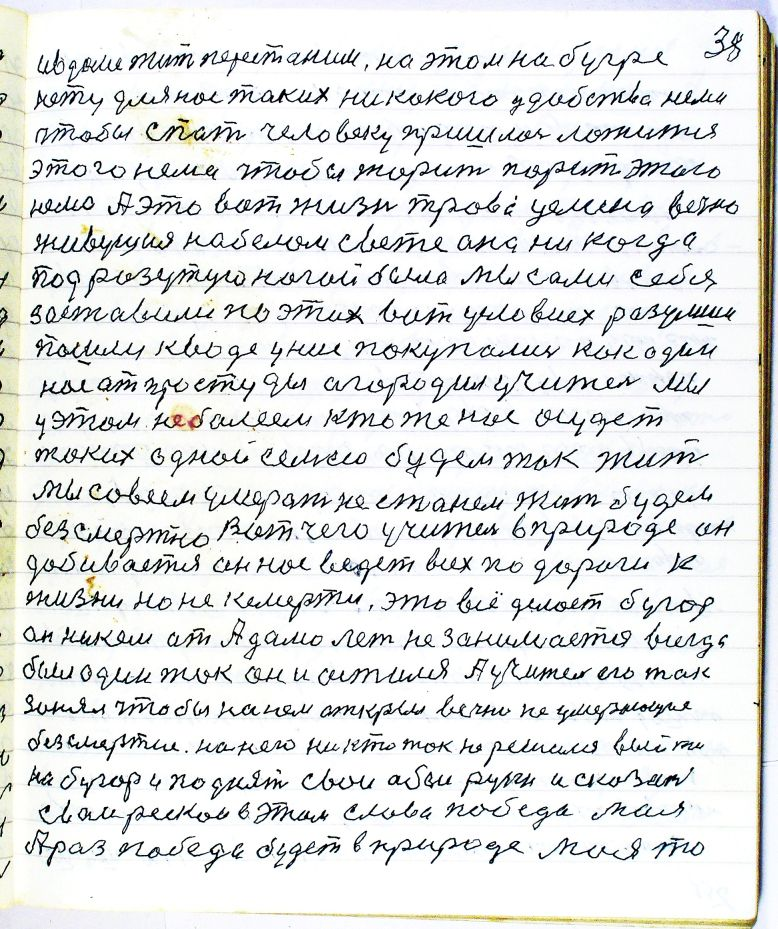 38
и в доме жит перестаним, на этом на бугре
нету для нос таких никокого удобства нема
чтобы спат человеку пришлоя ложится
этого нема чтобы жорит порит этого
нема А это вот жизн трова целена вечно
живущия на белом свете она ни когда
под розутую ногой была Мы сами себя
заставили по этих вот условиех разумши
пошли к воде у ние покупалия как один
нос ат простуды огородил учител Мы
у этом не болеем кто же нос осудет
токих одной семьею будем ток жит
Мы совсем умерат не станем жит будем
безсмертно Вот чего учител в природе он
добивается он нос ведет всех по дороги к
жизни но не к смерти, это всё делоет бугор
он никем от Адамо лет не занимается всегда
был один ток он и остался А учител его так
зонял чтобы на нем открыл вечно не умерающие
безсмертие. на него никто ток не решился выйти
на бугор и поднят свои абои руки и сказат
своим реском в этом слова победа моя
А раз победа будет в природе моя то